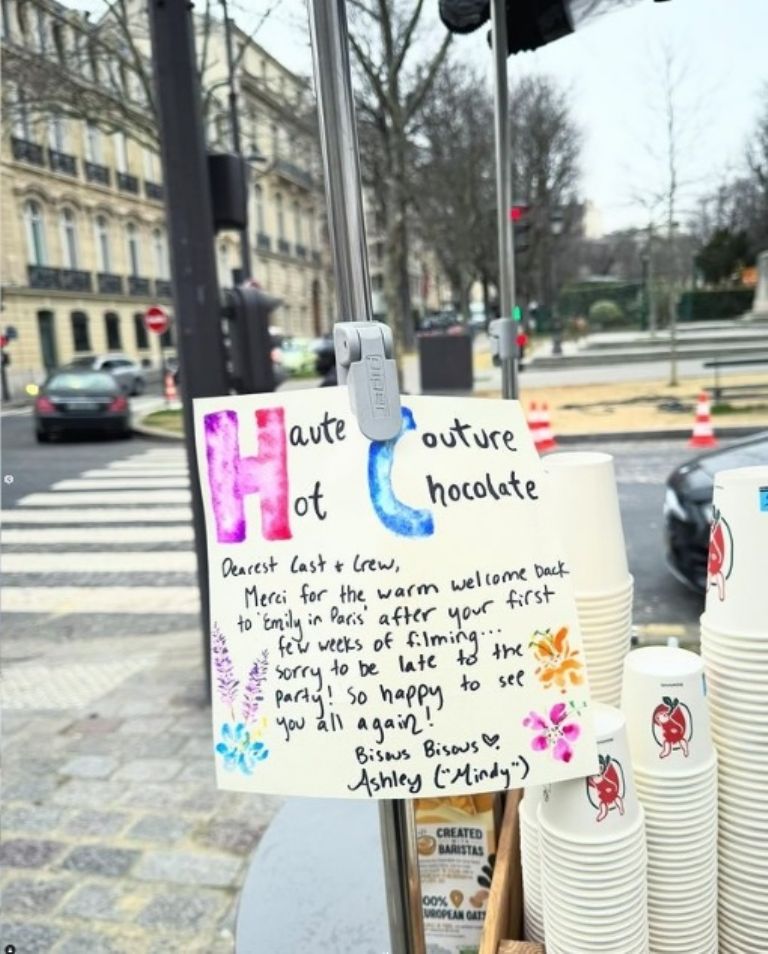 Haute Couture
Hot Chocolate
Dearest Cast + Crew,
Merci for the warm welcome back
to 'Emily in Paris' after your first
few weeks of filming...
sorry to be late to the
party! So happy to see
you all again!
Bisous Bisous
Ashley ("Mindy")
CREATED
WITH
BARISTAS
100%
EUROPEAN OATS